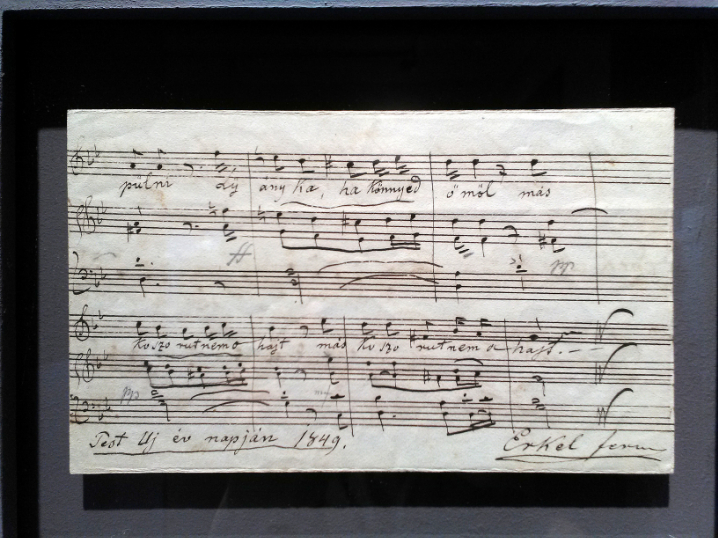 pülni lÿ ányka, ha könnyed ömöl más
pp
koszorút nem o hajt más koszorút nem o hajt. –
pp
Pest Új év napján 1849. Erkel feren